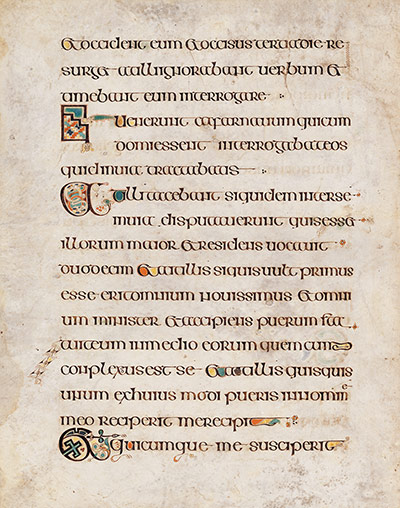 & occident eum & occisus tertia die re
surg& at illi ignorabant uerbum &
timebant eum interrogare
Et uenerunt cafarnauum qui cum
domi essent interrogabat eos
quid in uia tractabatis
At illi tacebant siquidem inter se
in uia disputauerunt quis ess&
illorum maior & residens uocauit
duodecim & ait illis si quis uult primus
esse erit omnium nouissimus & omni
um minister & accipiens puerum sta
tuit eum in medio eorum quem cum
complexus est se & ait illis quisquis
unum ex huius modi pueris in nomin
meo reciperit me recipit
& quicumque me susciperit